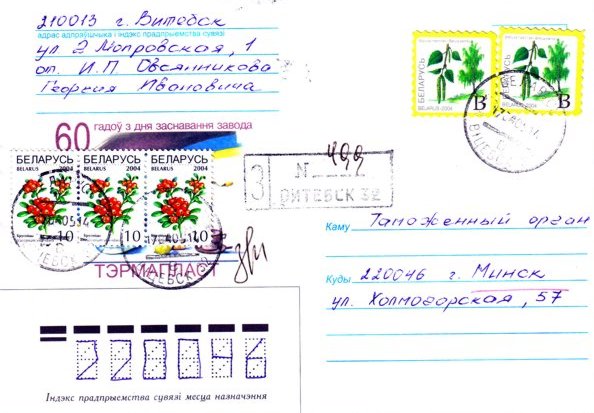 210013 г. Витебск
адрас адпраўшчыка і індэкс прадпрыемства сувязі
ул 2 Мопровская, 1
от. И.П Овсянникова
Георгия Ивановича
60 гадоў з дня заснавання завода
ТЭРМАПЛАСТ
БЕЛАРУСЬ
BELARUS 2004
10
БЕЛАРУСЬ
BELARUS 2004
10
БЕЛАРУСЬ
BELARUS 2004
10
БЕЛАРУСЬ
BELARUS·2004
B
БЕЛАРУСЬ
BELARUS·2004
B
З
N 499
ВИТЕБСК 32
Каму Таможенный орган
Куды 220046 г. Минск
ул. Холмогорская, 57
220046
Індэкс прадпрыемства сувязі месца назначэння